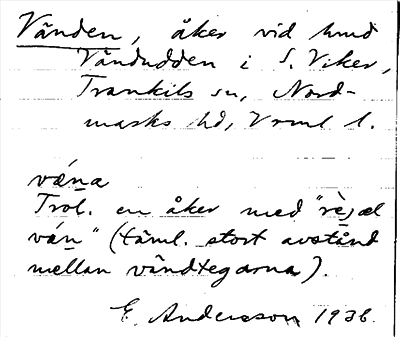 Vänden, åker vid
Vändudden i S. Viker,
Trankils sn, Nord-
marks hd, Vrml l.
väna
Trol. en åker med "rejæl
væn" (täml. stort avstånd
mellan vändtegarna).
E. Andersson 1936.